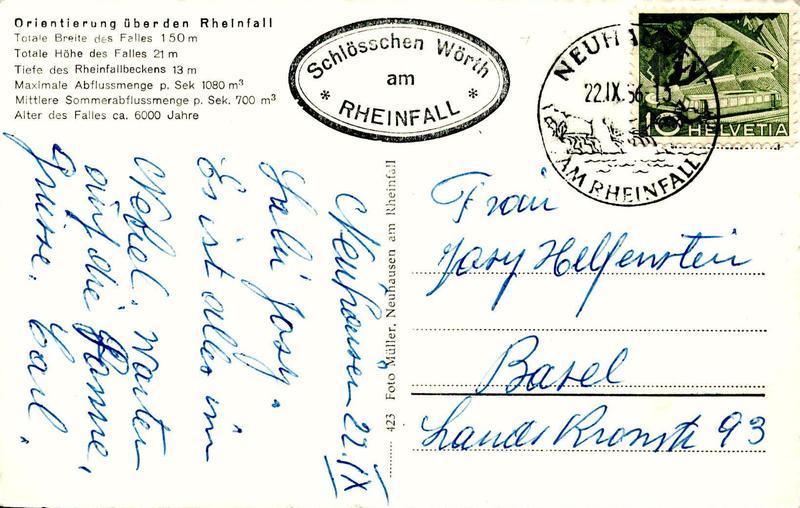 Orientierung über den Rheinfall
Totale Breite des Falles 150 m
Totale Höhe des Falles 21 m
Tiefe des Rheinfallbeckens 13 m
Maximale Abflussmenge p. Sek 1080 m³
Mittlere Sommerabflussmenge p. Sek. 700 m³
Alter des Falles ca. 6000 Jahre
Schlösschen Wörth
am
* RHEINFALL *
NEUHAUSEN
22.IX.56-13
AM RHEINFALL
10 HELVETIA
Neuhausen 22. IX
Salü Josy.
Es ist alles im
Nebel. Warten
auf die Sonne,
Grüsse. Carl.
423 Foto Müller, Neuhausen am Rheinfall
Frau
Josy Helfenstein
Basel
Landskronstr 93